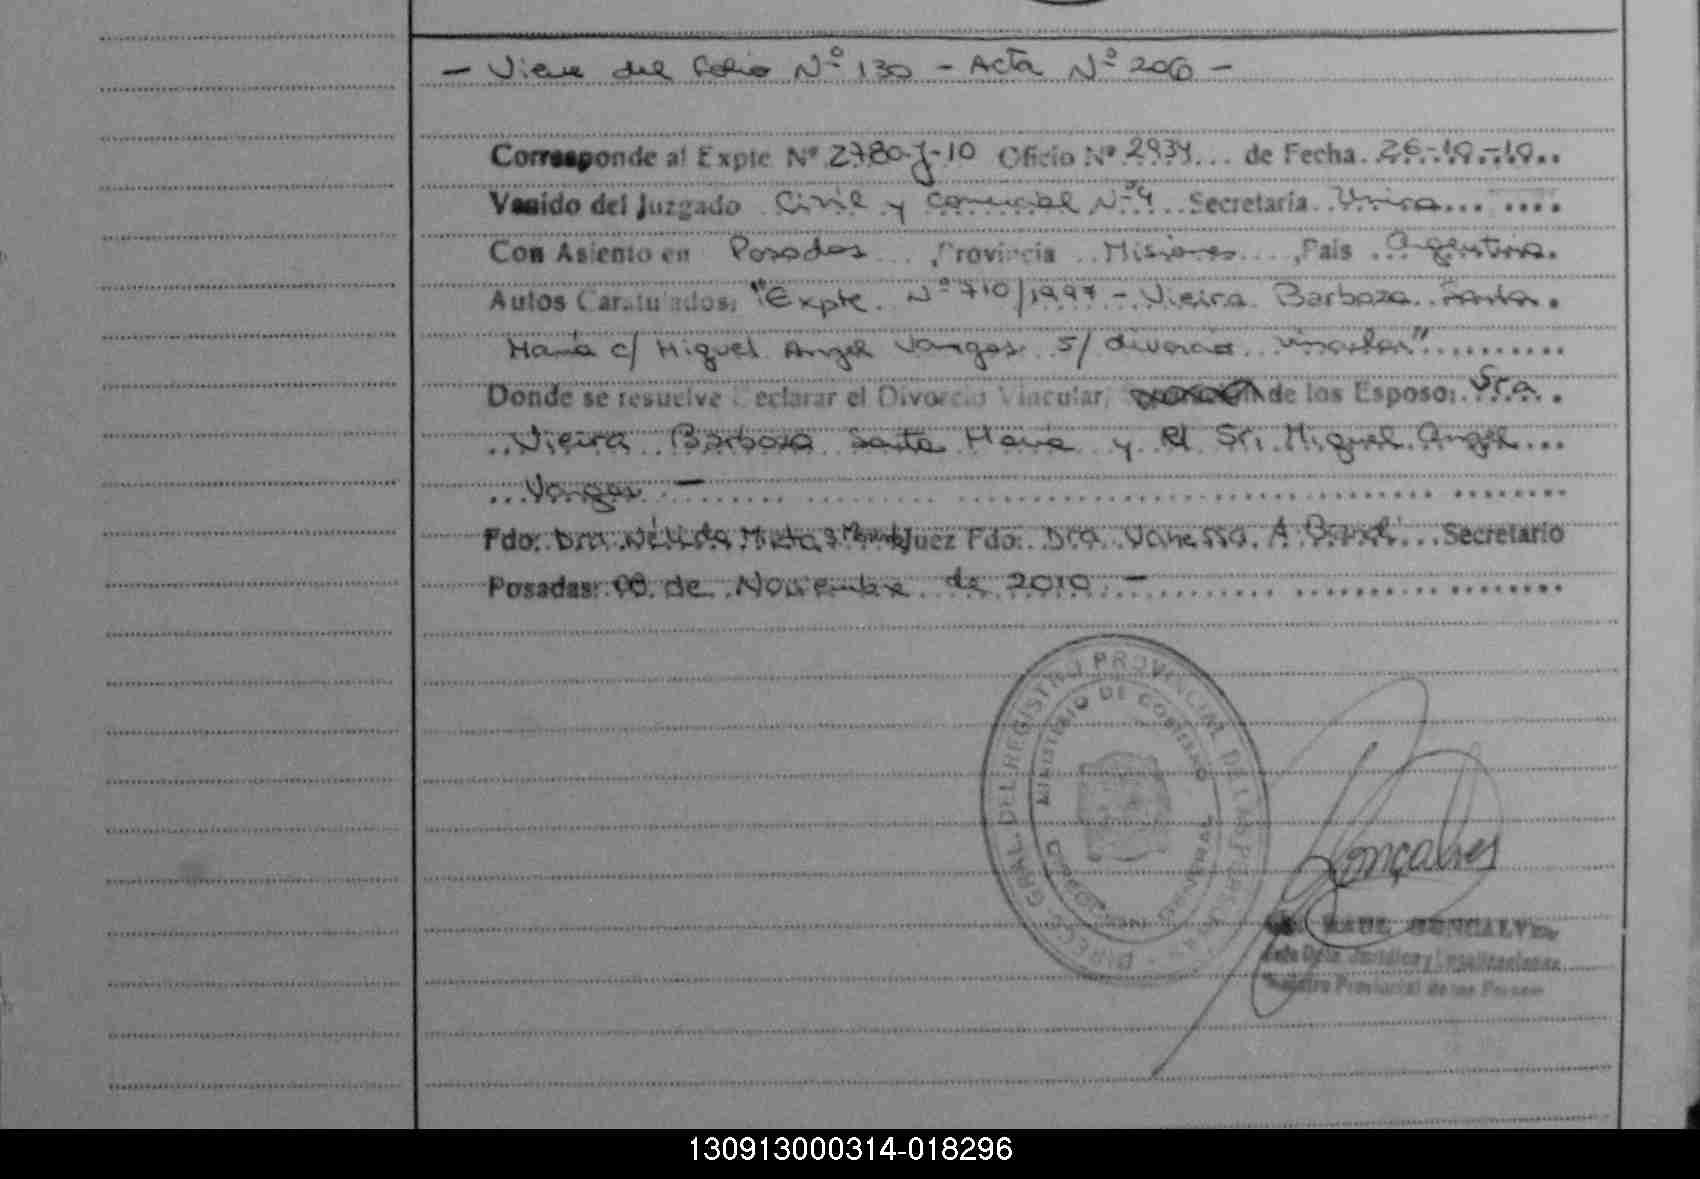 - Viene del Folio Nº 130 - Acta Nº 206 -
Corresponde al Expte Nº 2780-J-10 Oficio Nº 2934 de Fecha 26-10-10
Venido del Juzgado Civil y Comercial Nº 4 Secretaría Unica
Con Asiento en Posadas, Provincia Misiones, País Argentina.
Autos Caratulados: "Expte. Nº 710/1997 - Vieira Barboza Santa
María c/ Miguel Angel Vargas s/ divorcio vincular"
Donde se resuelve Declarar el Divorcio Vincular, de los Esposo: Sra.
Vieira Barboza Santa María y el Sr. Miguel Angel
Vargas -
Fdo: Dra Nélida Juez Fdo: Dra. Vanessa A. Secretario
Posadas: de Noviembre de 2010 -
DIRECC GRAL. DEL REGISTRO PROVINCIAL DE LAS PERSONAS
MINISTERIO DE GOBIERNO
Gonçalves
RAUL GONCALVES
Jurídica y Legalizaciones
Registro Provincial de las Personas
130913000314-018296